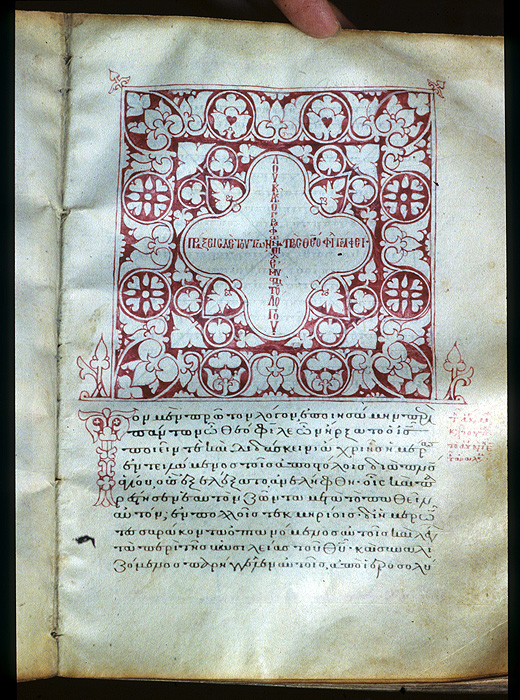 ΠΡΑΞΕΙΣ ΔΕ ΤΟΥΤΩΝ ΓΡΑΦΕΙ
Τὸν μὲν πρῶτον λόγον ἐποιησάμην περὶ
πάντων ὦ Θεόφιλε ὧν ἤρξατο ὁ ις
ποιεῖν τὲ καὶ διδάσκειν ἄχρι ἧς ἡμέρας
ἐντειλάμενος τοῖς ἀποστόλοις διὰ πνς
ἁγίου, οὓς ἐξελέξατο ἀνελήφθη· οἷς καὶ πα
ρέστησεν ἑαυτὸν ζῶντα μετὰ τὸ παθεῖν
αὐτόν, ἐν πολλοῖς τεκμηρίοις· δι' ἡμερῶν
τεσσαράκοντα ὀπτανόμενος αὐτοῖς καὶ λέγων
τὰ περὶ τῆς βασιλείας τοῦ θυ· καὶ συναλι
ζόμενος παρήγγειλεν αὐτοῖς, ἀπὸ ἱεροσολύ